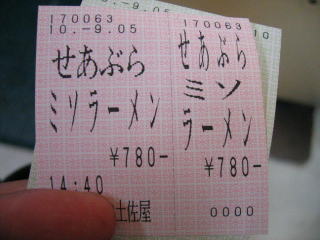 170063
10.-9.05
せあぶら
ミソラーメン
¥780-
14:40
土佐屋
170063
10.-9.05
せあぶら
ミソ
ラーメン
¥780-
0000
10